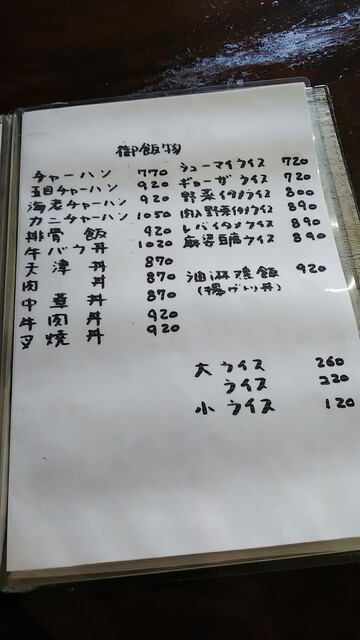 御飯物
チャーハン 770
五目チャーハン 920
海老チャーハン 920
カニチャーハン 1050
排骨飯 920
牛バラ丼 1020
天津丼 870
肉丼 870
中華丼 870
牛肉丼 920
叉焼丼 920
シューマイライス 720
ギョーザライス 720
野菜イタメライス 800
肉入野菜イタメライス 890
レバイタメライス 890
麻婆豆腐ライス 890
油淋鶏飯 920
(揚げトリ丼)
大ライス 260
ライス 220
小ライス 120